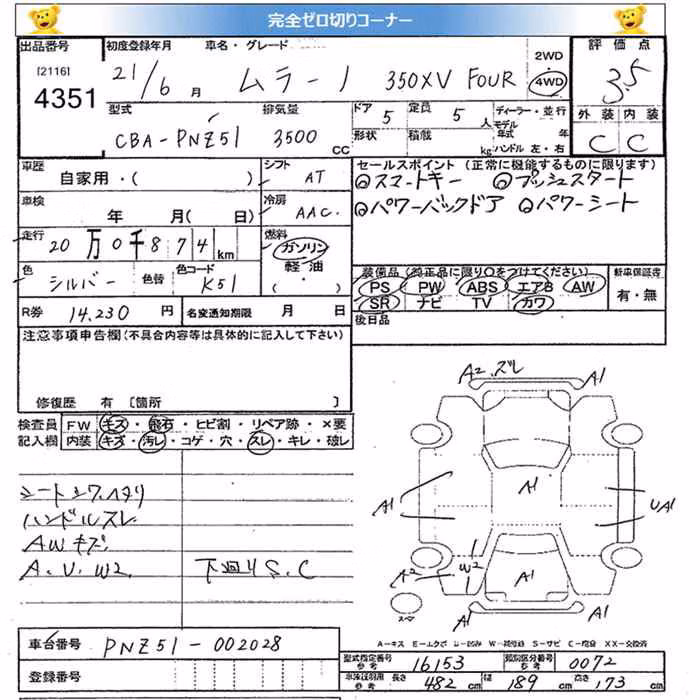 完全ゼロ切りコーナー
出品番号 初度登録年月 車名・グレード 2WD・4WD 評価点
[2116] 4351 21/6月 ムラーノ 350XV FOUR 3.5
型式 排気量 ドア 5 定員 5人 ディーラー・並行 外装 内装
CBA-PNZ51 3500cc 形状 積載 kg モデル年式 年 ハンドル 左・右 C C
車歴 自家用・( ) シフト AT セールスポイント (正常に機能するものに限ります)
◎スマートキー ◎プッシュスタート
車検 年 月(日) 冷房 AAC. ◎パワーバックドア ◎パワーシート
走行 20万0千874km 燃料 ガソリン 軽油 ・( )
色 シルバー 色替 色コード K51 装備品 (純正品に限り○をつけてください) 新車保証書
PS PW ABS エアB AW 有・無
SR ナビ TV カワ
R券 14.230円 名変通知期限 月 日 後日品
注意事項申告欄(不具合内容等は具体的に記入して下さい)
修復歴 有 [箇所 ]
検査員 FW キズ・飛石・ヒビ割・リペア跡・×要
記入欄 内装 キズ・汚レ・コゲ・穴・スレ・キレ・破レ
A2.ズレ
A1
A1
A1
A1
UA1
シートシワ.ヘタリ
ハンドルスレ
AWキズ
A.U.W2 下廻りS.C
A2
W2
A1
A1
スペア
A-キズ E-エクボ U-凹み W-補修跡 S-サビ C-腐食 XX-交換済
車台番号 PNZ51-002028
型式指定番号 参考 16153 類別区分番号 参考 0072
登録番号 車検証用 参考 長さ 482cm 幅 189cm 高さ 173cm